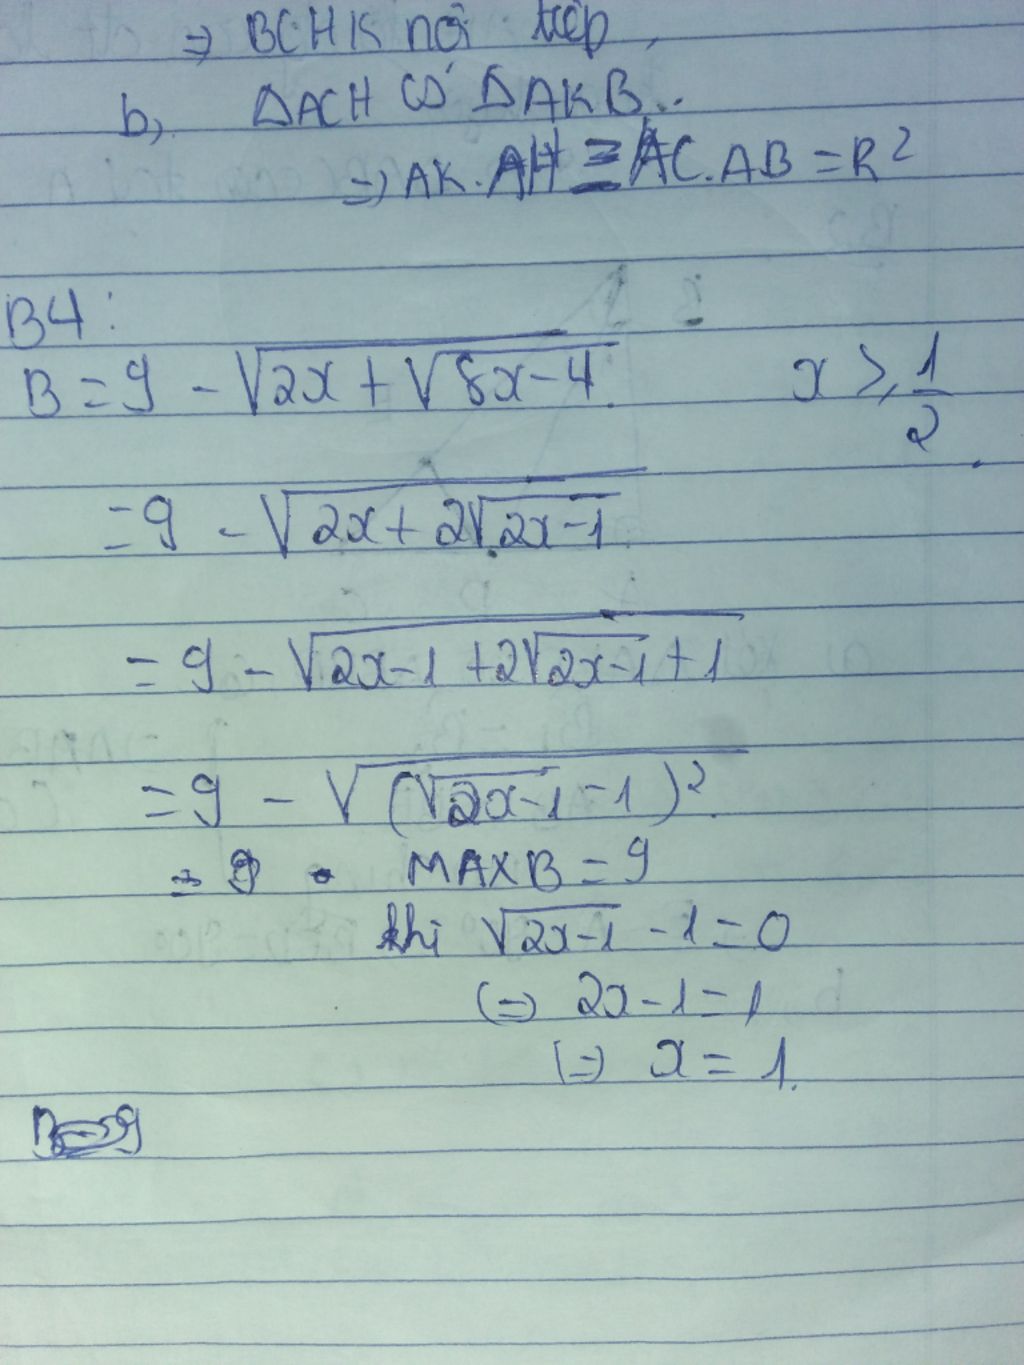 ⇒ BCHK nội tiếp.
b, ΔACH ∽ ΔAKB..
⇒ AK.AH = AC.AB = R²
B4:
B = 9 - √(2x + √(8x-4)) x ≥ 1/2
= 9 - √(2x + 2√(2x-1))
= 9 - √(2x-1 + 2√(2x-1) + 1)
= 9 - √((√(2x-1) - 1)²)
= 9 - MAX B = 9
khi √(2x-1) - 1 = 0
(=) 2x-1 = 1
(=) x = 1.